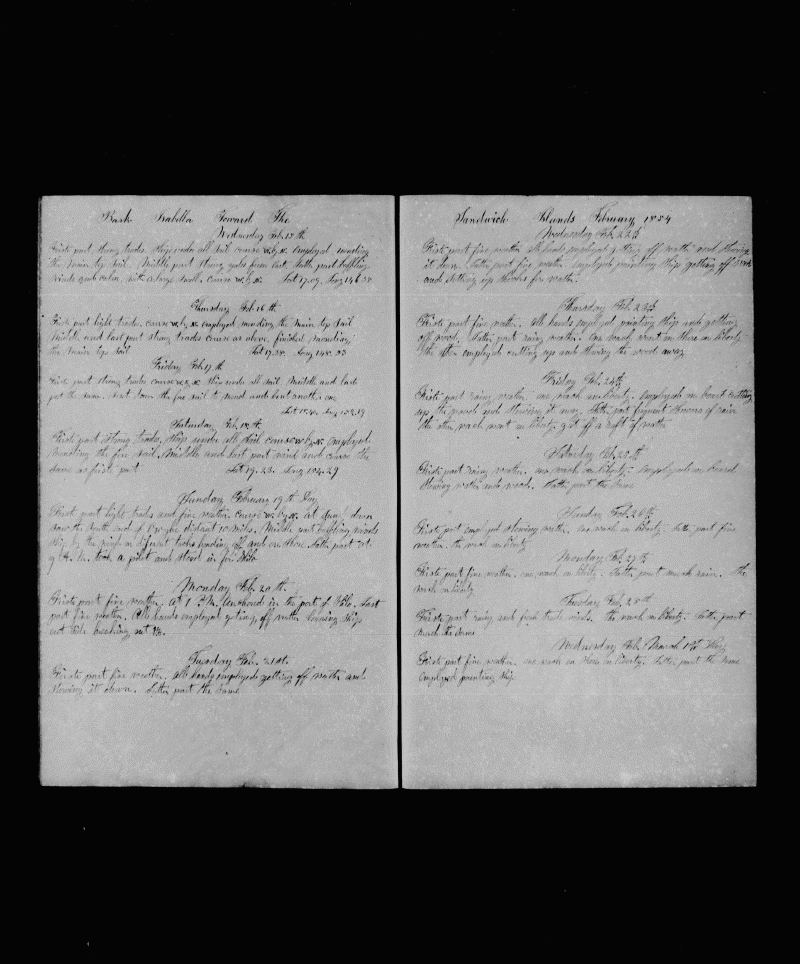 Bark Isabella Toward The
Wednesday Feb. 15th
Firste part strong trades Ship under all sail course W. by N. employed mending
the main top sail. Middle part strong gale from East. Latte part baffling
winds and calm, with a large swell. course W by N. Lat 17.09 Long
Thursday Feb 16th
Firste part light trades course W. by N. employed mending the main top sail
Middle and last part strong trades course as above, finished mending
the main top sail Lat 17.38 Long 148.23
Friday Feb. 17th
Firste part strong trades course W by N. Ship under all sail. Middle and last
part the same. sent down the fore sail to mend and bent another one
Lat Long
Saturday Feb. 18th
Firste part strong trades, Ship under all sail course W by N. employed
mending the fore sail. Middle and last part wind and course the
same as firste part Lat 19.23. Long 154.29
Sunday February 19th Day
Firste part light trades and fine weather. course W. by N. at day down
saw the South end of distant 10 miles. Middle part baffling winds
ship by the wind on diferent tacks heading off and on shore. Latte part at
9 A. M. took a pilot and stood in for Hilo
Monday Feb. 20th.
Firste part fine weather. At 1 P.M. Anchored in the port of Hilo. Last
part fine weather. All hands employed getting off water
out side
Tuesday Feb. 21st.
Firste part fine weather. all hands employed getting off water and
stowing it down. Latte part the same

Sandwich Islands February 1854
Wednesday Feb. 22th
Firste part fine weather all hands employed getting off water and stowing
it down. Latte part fine weather employed painting ship getting off wood
and setting up for water.
Thursday Feb. 23th
Firste part fine weather. All hands employed painting ship and getting
off wood. Latte part rainy weather. One watch went on shore on liberty
the other employed cutting up and stowing the wood away
Friday Feb. 24th
Firste part rainy weather. one watch on liberty. employed on board cutting
up the wood and stowing it away. Latte part frequent showers of rain
the other watch went on liberty got off a raft of water
Saturday Feb. 25th
Firste part rainy weather. one watch on liberty. employed on board
stowing water and wood. Latte part the same
Sunday Feb. 26th
Firste part employed stowing water. one watch on liberty. Latte part fine
weather. the watch on liberty
Monday Feb. 27th
Firste part fine weather. one watch on liberty. Latte part much rain. the
watch on liberty
Tuesday Feb. 28th
Firste part rainy and fresh trade winds. the watch on liberty. Latte part
much the same
Wednesday Feb. March 1st Day
Firste part fine weather. one watch on shore on liberty. Latte part the same
employed painting ship